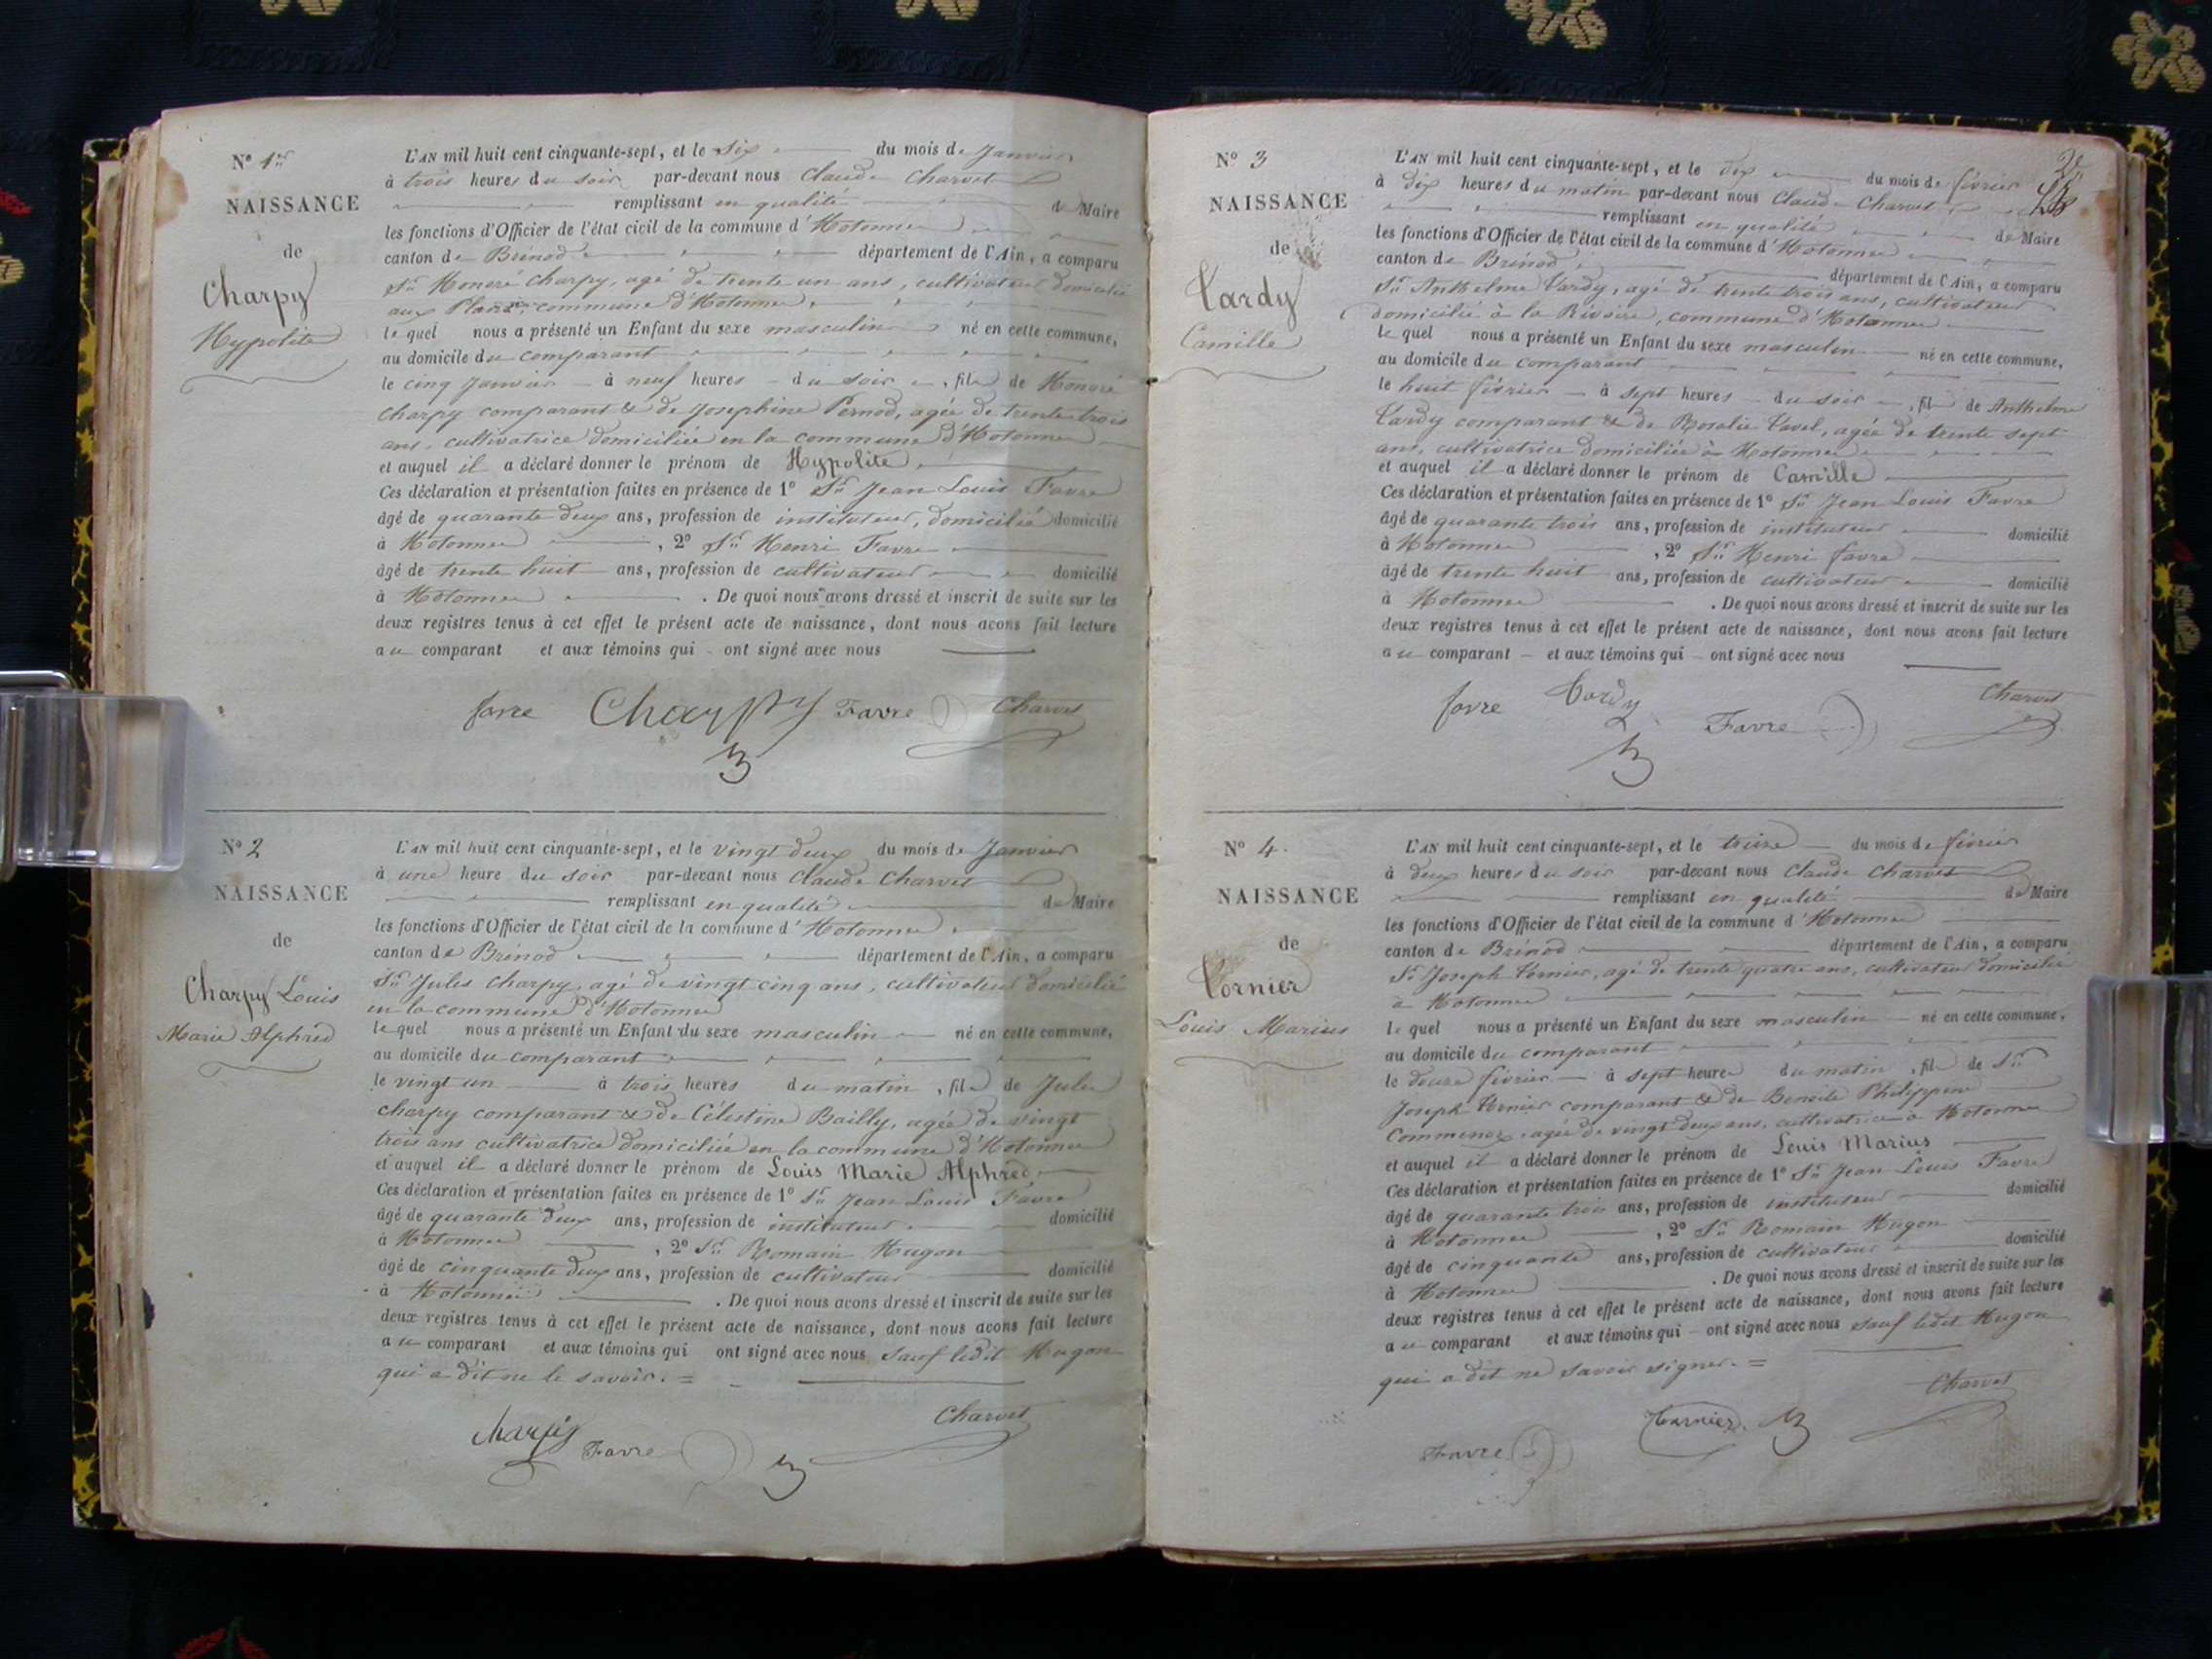 Nº 1er
NAISSANCE
de
Charpy
Hypolite
L'AN mil huit cent cinquante-sept, et le six du mois de Janvier
à trois heures du soir par-devant nous Claude Charvet
remplissant en qualité de Maire
les fonctions d'Officier de l'état civil de la commune d'Hotonnes
canton de Brénod département de l'Ain, a comparu
Sr Honoré Charpy, agé de trente un ans, cultivateur domicilié
aux Plans, commune d'Hotonnes,
lequel nous a présenté un Enfant du sexe masculin né en cette commune,
au domicile du comparant
le cinq Janvier à neuf heures du soir, fils de Honoré
Charpy comparant & de Josephine Pernod, agée de trente trois
ans, cultivatrice domiciliée en la commune d'Hotonnes
et auquel il a déclaré donner le prénom de Hypolite,
Ces déclaration et présentation faites en présence de 1º Sr Jean Louis Favre
âgé de quarante deux ans, profession de instituteur, domicilié domicilié
à Hotonnes, 2º Sr Henri Favre
âgé de trente huit ans, profession de cultivateur domicilié
à Hotonnes. De quoi nous avons dressé et inscrit de suite sur les
deux registres tenus à cet effet le présent acte de naissance, dont nous avons fait lecture
au comparant et aux témoins qui ont signé avec nous
favre Charpy Favre Charvet
Nº 2
NAISSANCE
de
Charpy Louis
Marie Alphred
L'AN mil huit cent cinquante-sept, et le vingt deux du mois de Janvier
à une heure du soir par-devant nous Claude Charvet
remplissant en qualité de Maire
les fonctions d'Officier de l'état civil de la commune d'Hotonnes
canton de Brénod département de l'Ain, a comparu
Sr Jules Charpy, agé de vingt cinq ans, cultivateur domicilié
en la commune d'Hotonnes
lequel nous a présenté un Enfant du sexe masculin né en cette commune,
au domicile du comparant
le vingt un à trois heures du matin, fils de Jules
Charpy comparant & de Célestine Bailly, agée de vingt
trois ans cultivatrice domiciliée en la commune d'Hotonnes
et auquel il a déclaré donner le prénom de Louis Marie Alphred,
Ces déclaration et présentation faites en présence de 1º Sr Jean Louis Favre
âgé de quarante deux ans, profession de instituteur domicilié
à Hotonnes, 2º Sr Romain Hugon
âgé de cinquante deux ans, profession de cultivateur domicilié
à Hotonnes. De quoi nous avons dressé et inscrit de suite sur les
deux registres tenus à cet effet le présent acte de naissance, dont nous avons fait lecture
au comparant et aux témoins qui ont signé avec nous sauf ledit Hugon
qui a dit ne le savoir. =
Charpy Favre Charvet
Nº 3
NAISSANCE
de
Tardy
Camille
L'AN mil huit cent cinquante-sept, et le dix du mois de février
à dix heures du matin par-devant nous Claude Charvet
remplissant en qualité de Maire
les fonctions d'Officier de l'état civil de la commune d'Hotonnes
canton de Brénod département de l'Ain, a comparu
Sr Anthelme Tardy, agé de trente trois ans, cultivateur
domicilié à la Rivoire, commune d'Hotonnes
lequel nous a présenté un Enfant du sexe masculin né en cette commune,
au domicile du comparant
le huit février à sept heures du soir, fils de Anthelme
Tardy comparant & de Rosalie Tavel, agée de trente sept
ans, cultivatrice domiciliée à Hotonnes
et auquel il a déclaré donner le prénom de Camille
Ces déclaration et présentation faites en présence de 1º Sr Jean Louis Favre
âgé de quarante trois ans, profession de instituteur domicilié
à Hotonnes, 2º Sr Henri favre
âgé de trente huit ans, profession de cultivateur domicilié
à Hotonnes. De quoi nous avons dressé et inscrit de suite sur les
deux registres tenus à cet effet le présent acte de naissance, dont nous avons fait lecture
au comparant et aux témoins qui ont signé avec nous
favre Tardy Favre Charvet
Nº 4.
NAISSANCE
de
Tornier
Louis Marius
L'AN mil huit cent cinquante-sept, et le treize du mois de février
à deux heures du soir par-devant nous Claude Charvet
remplissant en qualité de Maire
les fonctions d'Officier de l'état civil de la commune d'Hotonnes
canton de Brénod département de l'Ain, a comparu
Sr Joseph Tornier, agé de trente quatre ans, cultivateur domicilié
à Hotonnes
lequel nous a présenté un Enfant du sexe masculin né en cette commune,
au domicile du comparant
le douze février à sept heures du matin, fils de Sr
Joseph Tornier comparant & de Benoite Philippine
agée de vingt deux ans, cultivatrice à Hotonnes
et auquel il a déclaré donner le prénom de Louis Marius
Ces déclaration et présentation faites en présence de 1º Sr Jean Louis Favre
âgé de quarante trois ans, profession de instituteur domicilié
à Hotonnes, 2º Sr Romain Hugon
âgé de cinquante ans, profession de cultivateur domicilié
à Hotonnes. De quoi nous avons dressé et inscrit de suite sur les
deux registres tenus à cet effet le présent acte de naissance, dont nous avons fait lecture
au comparant et aux témoins qui ont signé avec nous sauf ledit Hugon
qui a dit ne savoir signer. =
Favre Tornier Charvet